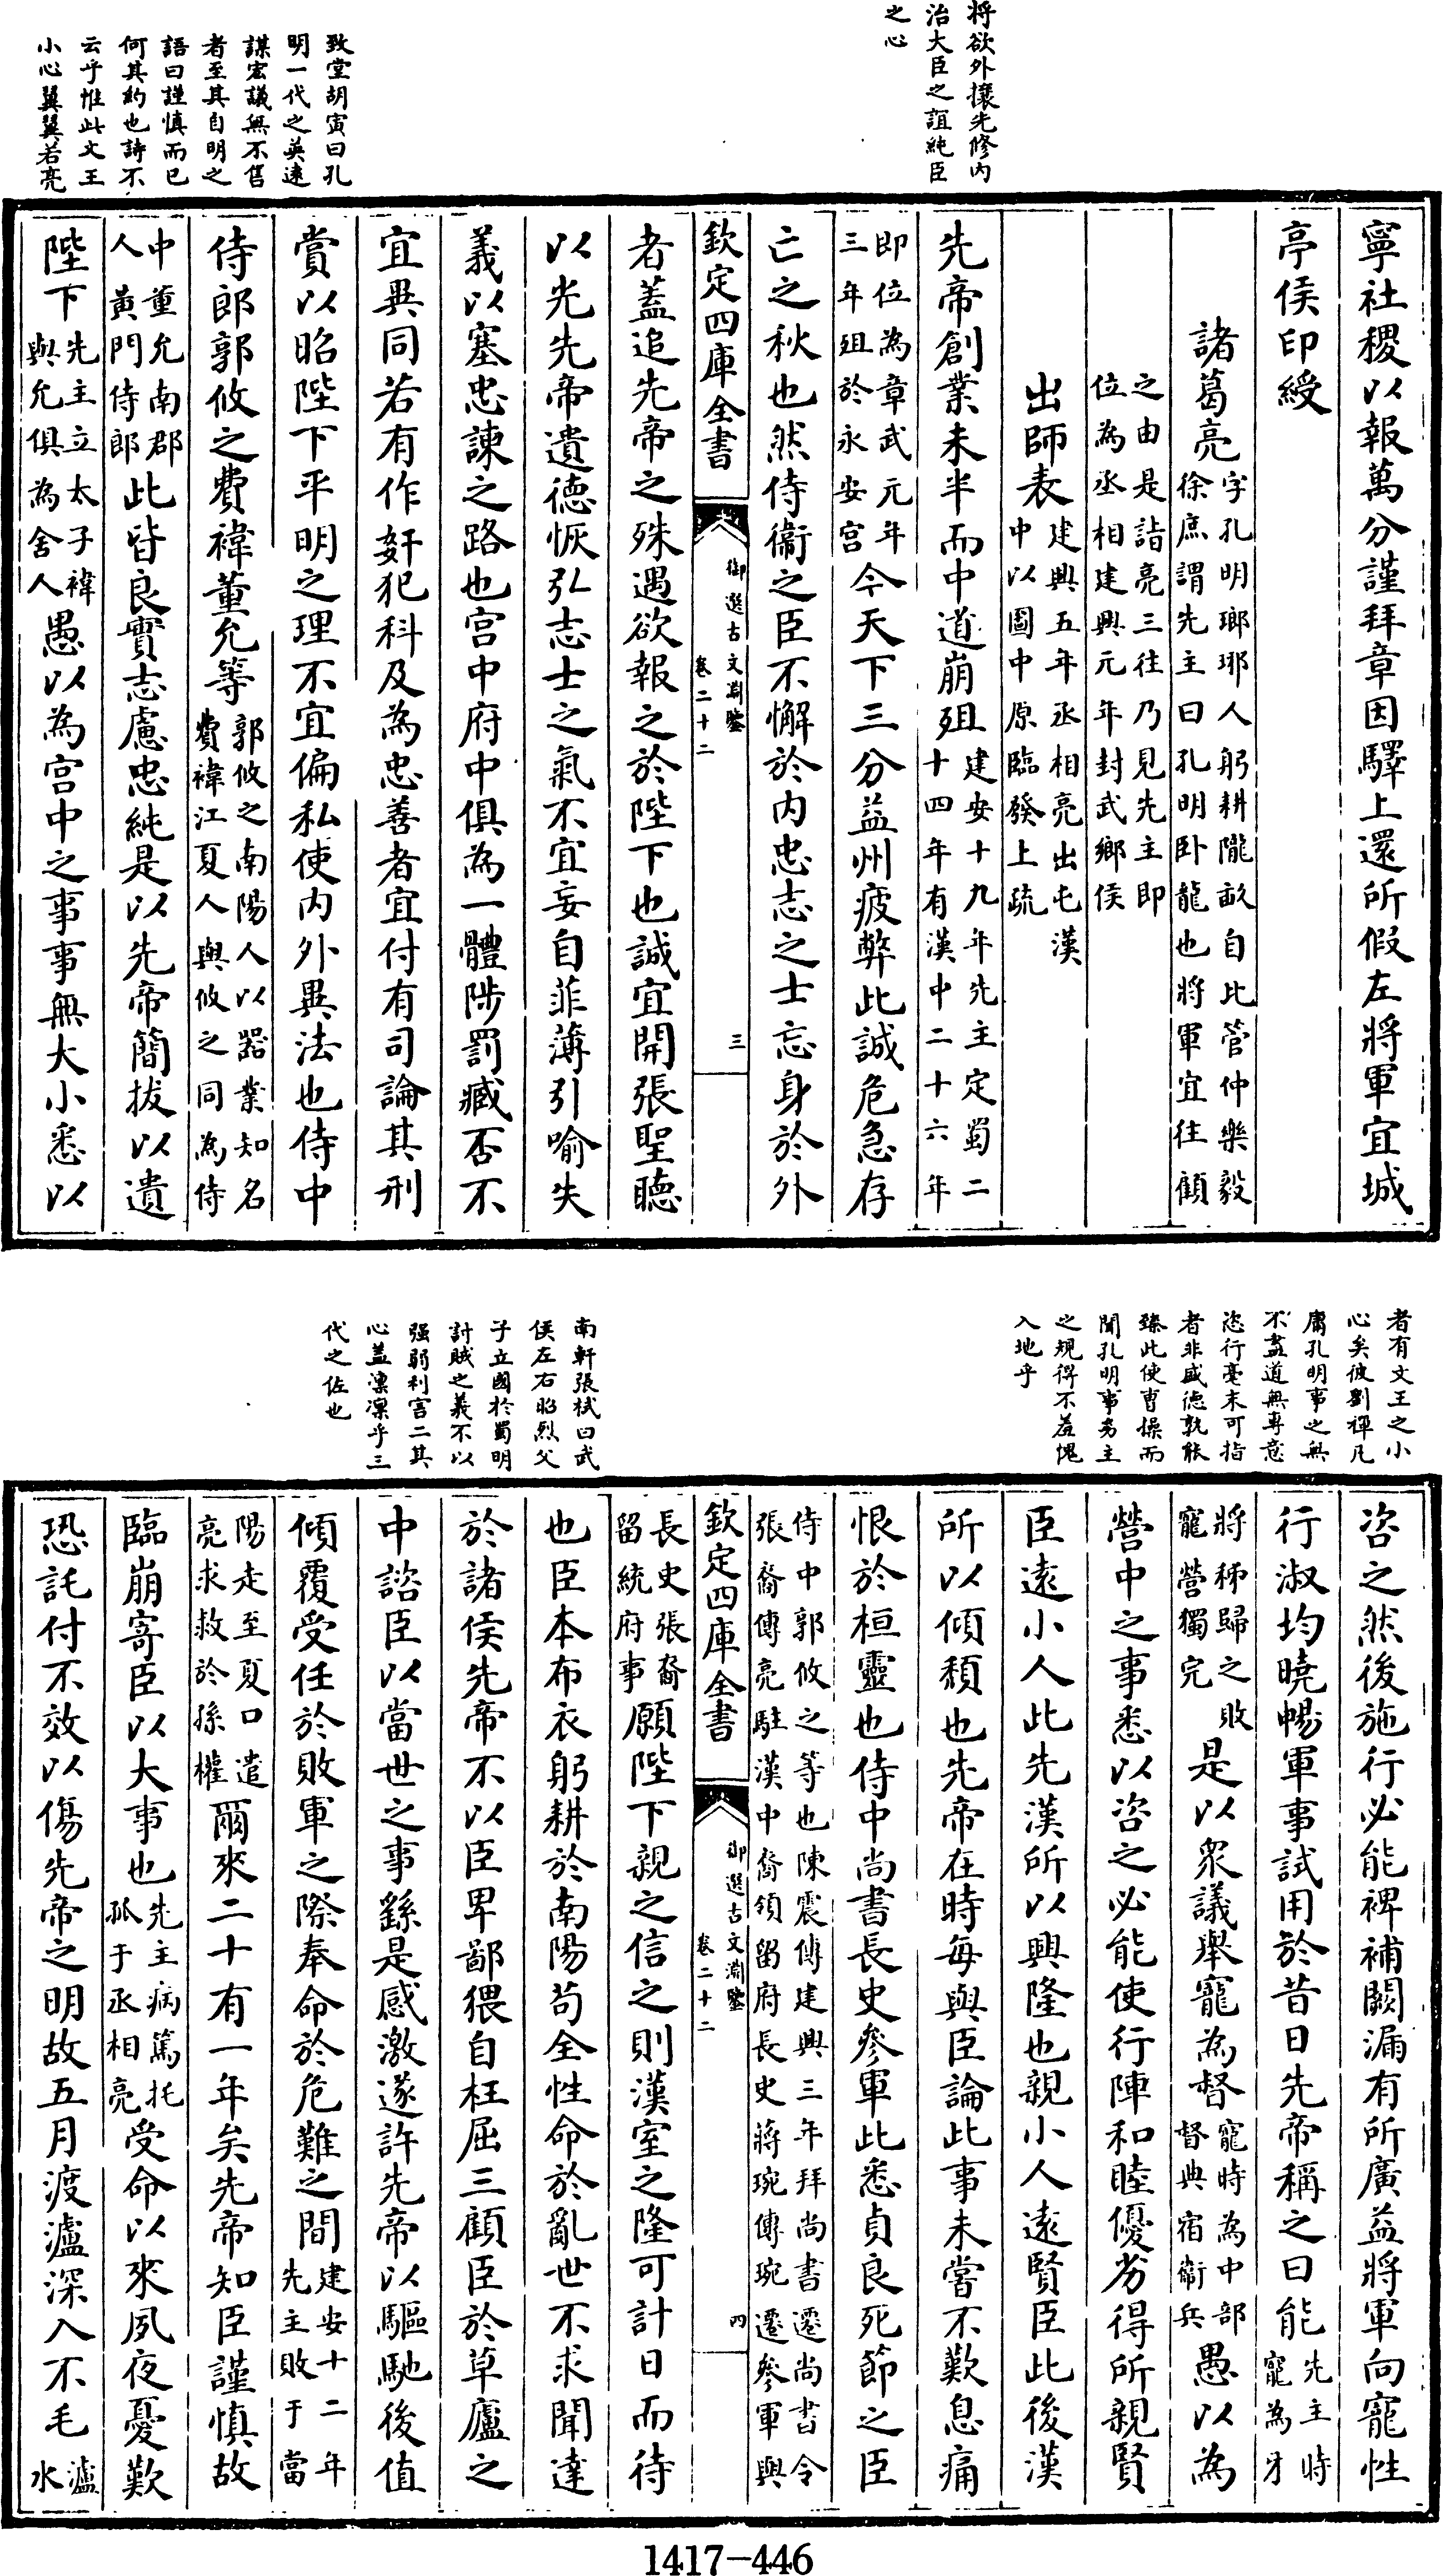 将欲外攘先修内
治大臣之誼純臣
之心
致堂胡寅曰孔
明一代之英逺
謀宏議無不售
者至其自明之
語曰謹慎而已
何其約也詩不
云乎惟此文王
小心翼翼若亮
寧社稷以報萬分謹拜章因驛上還所假左將軍宜城
亭侯印綬
諸葛亮字孔明瑯琊人躬耕隴畝自比管仲樂毅
徐庶謂先主曰孔明卧龍也將軍宜往顧
之由是詣亮三往乃見先主即
位為丞相建興元年封武鄉侯
出師表建興五年丞相亮出屯漢
中以圖中原臨發上疏
先帝創業未半而中道崩殂建安十九年先主定蜀二
十四年有漢中二十六年
即位為章武元年
三年殂於永安宫今天下三分益州疲弊此誠危急存
亡之秋也然侍衞之臣不懈於内忠志之士忘身於外
欽定四庫全書
御選古文淵鑒
卷二十二
三
者蓋追先帝之殊遇欲報之於陛下也誠宜開張聖聽
以光先帝遺德恢弘志士之氣不宜妄自菲薄引喻失
義以塞忠諫之路也宫中府中俱為一體陟罰臧否不
宜異同若有作奸犯科及為忠善者宜付有司論其刑
賞以昭陛下平明之理不宜偏私使内外異法也侍中
侍郎郭攸之費禕董允等郭攸之南陽人以器業知名
費禕江夏人與攸之同為侍
中董允南郡
人黄門侍郎此皆良實志慮忠純是以先帝簡拔以遺
陛下先主立太子禕
與允俱為舍人愚以為宫中之事事無大小悉以
者有文王之小
心矣彼劉禪凡
庸孔明事之無
不盡道無專意
恣行毫末可指
者非盛德孰能
臻此使曹操而
聞孔明事劣主
之規得不羞愧
入地乎
南軒張栻曰武
侯左右昭烈父
子立國於蜀明
討賊之義不以
强弱利害二其
心盖凛凛乎三
代之佐也
咨之然後施行必能裨補闕漏有所廣益將軍向寵性
行淑均曉暢軍事試用於昔日先帝稱之曰能先主時
寵為牙
將秭歸之敗
寵營獨完是以衆議舉寵為督寵時為中部
督典宿衞兵愚以為
營中之事悉以咨之必能使行陣和睦優劣得所親賢
臣逺小人此先漢所以興隆也親小人逺賢臣此後漢
所以傾頽也先帝在時每與臣論此事未嘗不歎息痛
恨於桓靈也侍中尚書長史參軍此悉貞良死節之臣
侍中郭攸之等也陳震傳建興三年拜尚書遷尚書令
張裔傳亮駐漢中裔領留府長史蔣琬傳琬遷參軍與
欽定四庫全書
御選古文淵鑒
卷二十二
四
長史張裔
留統府事願陛下親之信之則漢室之隆可計日而待
也臣本布衣躬耕於南陽茍全性命於亂世不求聞達
於諸侯先帝不以臣卑鄙猥自枉屈三顧臣於草廬之
中諮臣以當世之事繇是感激遂許先帝以驅馳後值
傾覆受任於敗軍之際奉命於危難之間建安十二年
先主敗于當
陽走至夏口遣
亮求救於孫權爾來二十有一年矣先帝知臣謹慎故
臨崩寄臣以大事也先主病篤托
孤于丞相亮受命以來夙夜憂歎
恐託付不效以傷先帝之明故五月渡瀘深入不毛瀘
水
1417-446